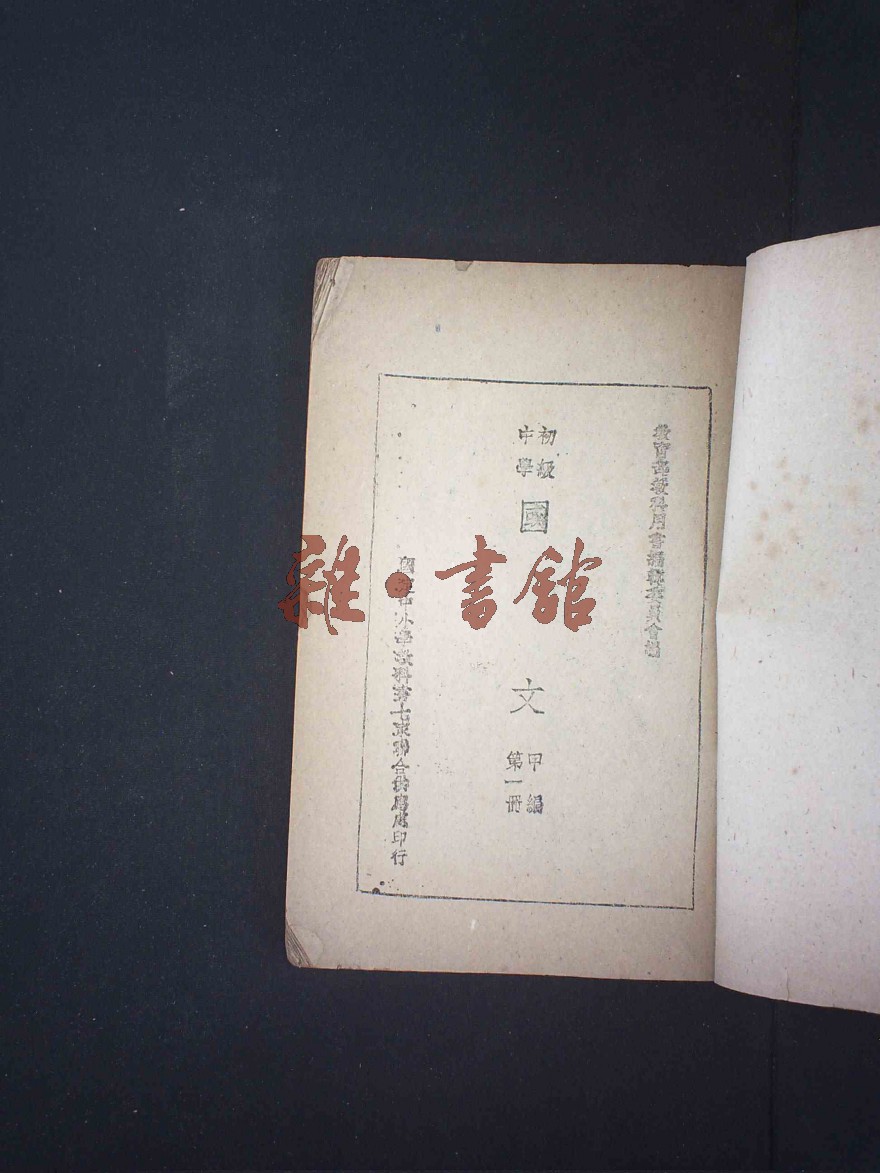 教育部教科用書編輯委員會編
初級
中學
國文
甲編
第一冊
國定中小學教科書七家聯合供應處印行
雜·書館